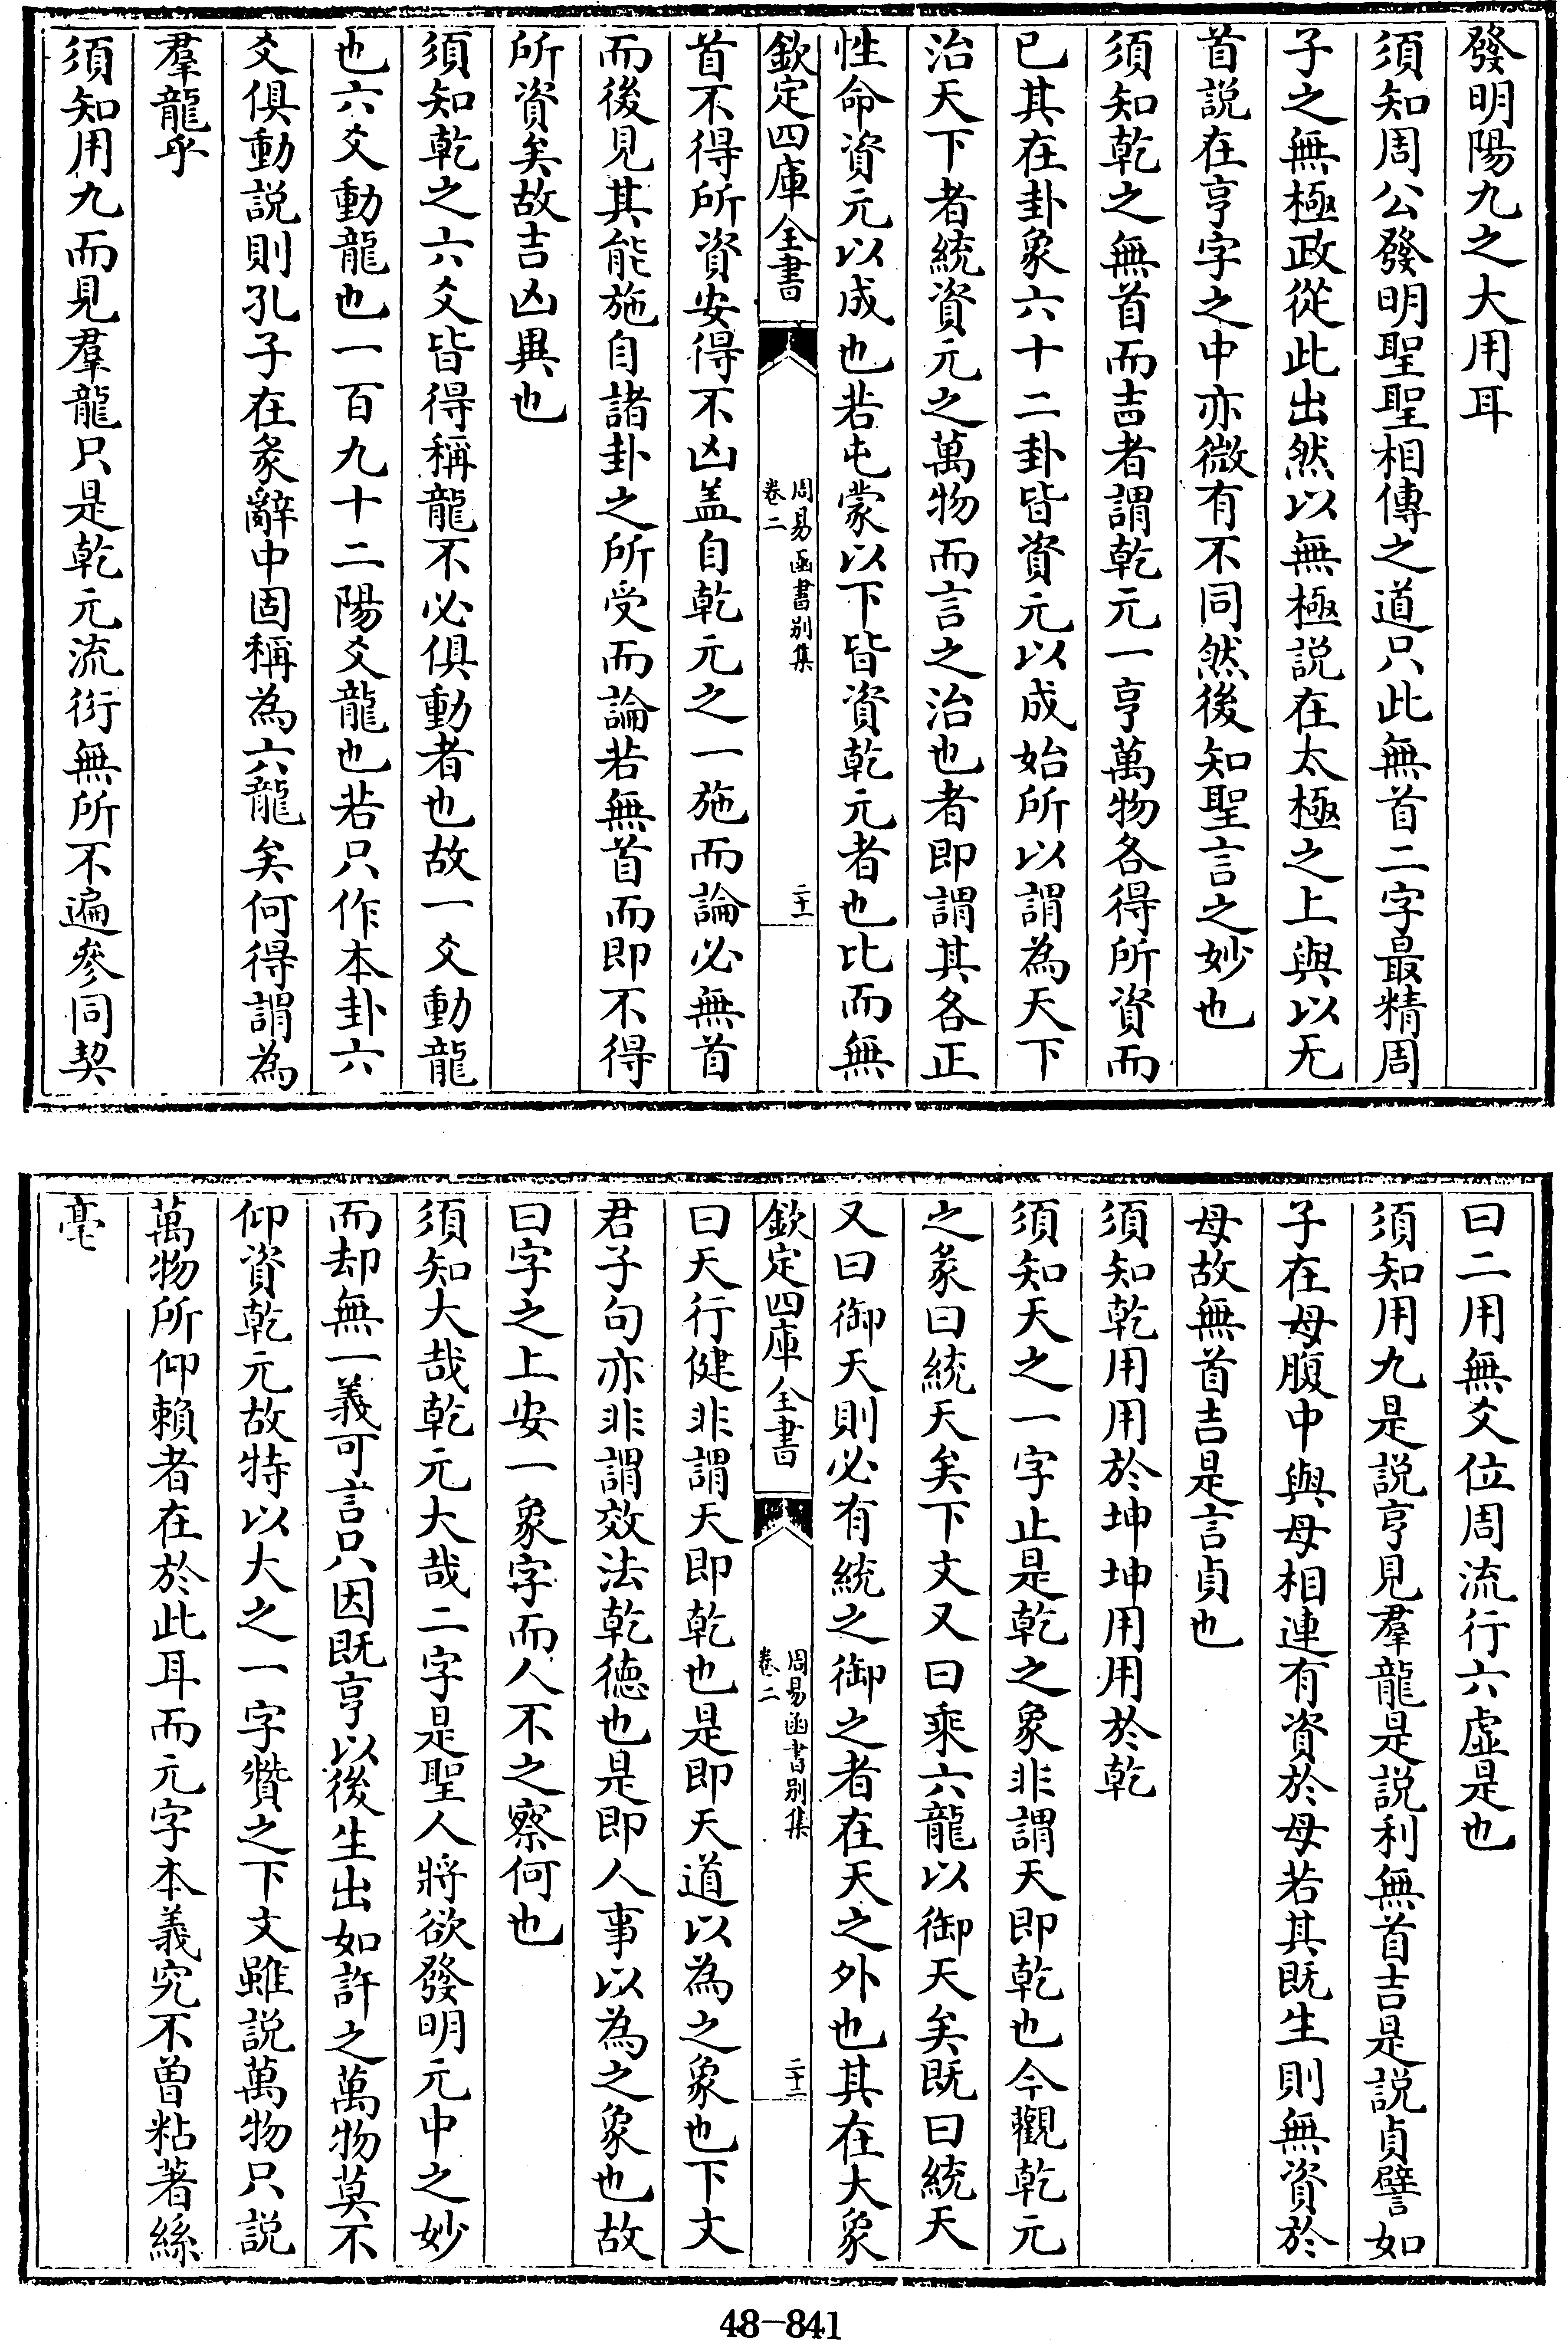 發明陽九之大用耳
須知周公發明聖聖相傳之道只此無首二字最精周
子之無極政從此出然以無極説在太極之上與以无
首説在亨字之中亦微有不同然後知聖言之妙也
須知乾之無首而吉者謂乾元一亨萬物各得所資而
已其在卦象六十二卦皆資元以成始所以謂為天下
治天下者統資元之萬物而言之治也者即謂其各正
性命資元以成也若屯蒙以下皆資乾元者也比而無
欽定四庫全書
周易函書别集
卷二
二十一
首不得所資安得不凶盖自乾元之一施而論必無首
而後見其能施自諸卦之所受而論若無首而即不得
所資矣故吉凶異也
須知乾之六爻皆得稱龍不必俱動者也故一爻動龍
也六爻動龍也一百九十二陽爻龍也若只作本卦六
爻俱動説則孔子在彖辭中固稱為六龍矣何得謂為
羣龍乎
須知用九而見羣龍只是乾元流衍無所不遍參同契
曰二用無爻位周流行六虚是也
須知用九是説亨見羣龍是説利無首吉是説貞譬如
子在母腹中與母相連有資於母若其既生則無資於
母故無首吉是言貞也
須知乾用用於坤坤用用於乾
須知天之一字止是乾之象非謂天即乾也今觀乾元
之彖曰統天矣下文又曰乘六龍以御天矣既曰統天
又曰御天則必有統之御之者在天之外也其在大象
欽定四庫全書
周易函書别集
卷二
二十二
曰天行健非謂天即乾也是即天道以為之象也下文
君子句亦非謂效法乾德也是即人事以為之象也故
曰字之上安一象字而人不之察何也
須知大哉乾元大哉二字是聖人將欲發明元中之妙
而却無一義可言只因既亨以後生出如許之萬物莫不
仰資乾元故特以大之一字贊之下文雖説萬物只説
萬物所仰賴者在於此耳而元字本義究不曾粘著絲
毫
48-841